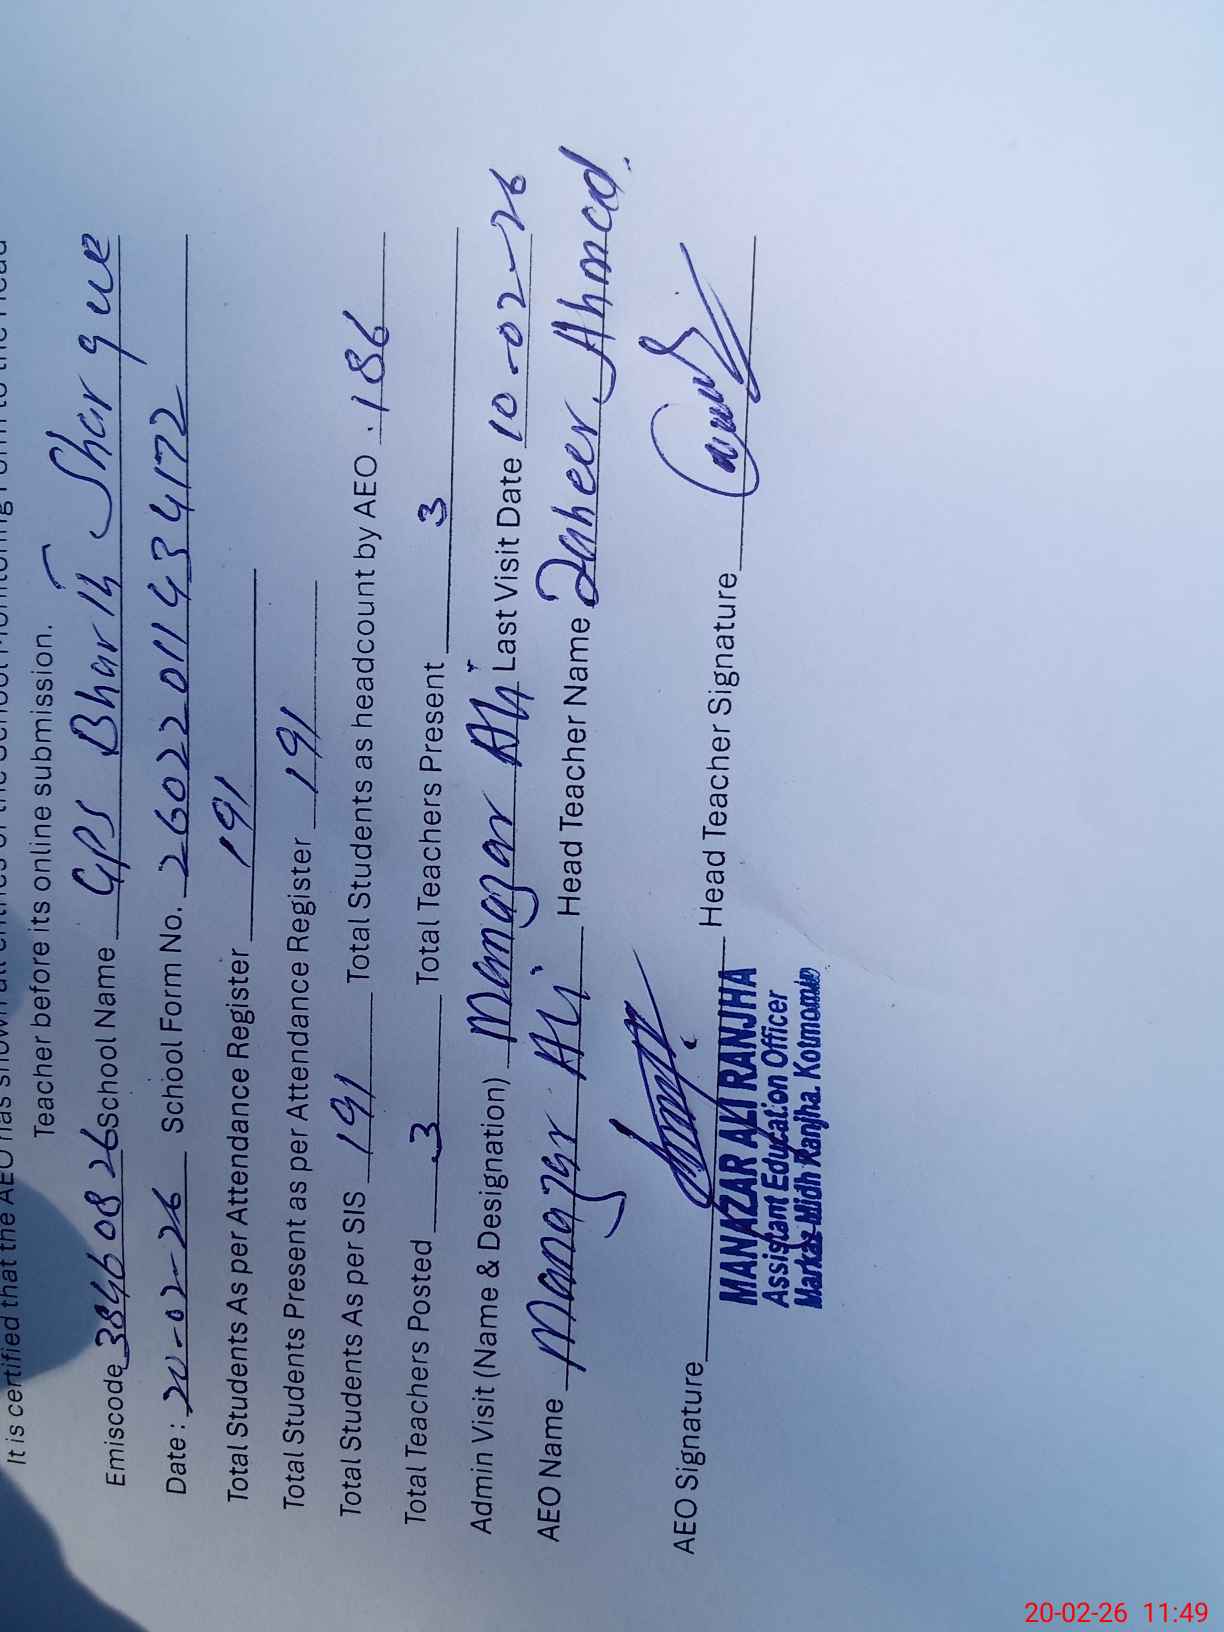 It is certified that the AEO has shown all entries of the School Monitoring Form to the Head
Teacher before its online submission.
Emiscode 38460826 School Name GPS Bharth Sharque
Date: 20-02-26 School Form No. 26022011434172
Total Students As per Attendance Register 191
Total Students Present as per Attendance Register 191
Total Students As per SIS 191 Total Students as headcount by AEO 186
Total Teachers Posted 3 Total Teachers Present 3
Admin Visit (Name & Designation) Manazar Ali Last Visit Date 10-02-26
AEO Name Manazar Ali Head Teacher Name Zaheer Ahmed.
AEO Signature Head Teacher Signature
MANAZAR ALI RANJHA
Assistant Education Officer
Markaz Midh Ranjha. Kotmomin
20-02-26 11:49